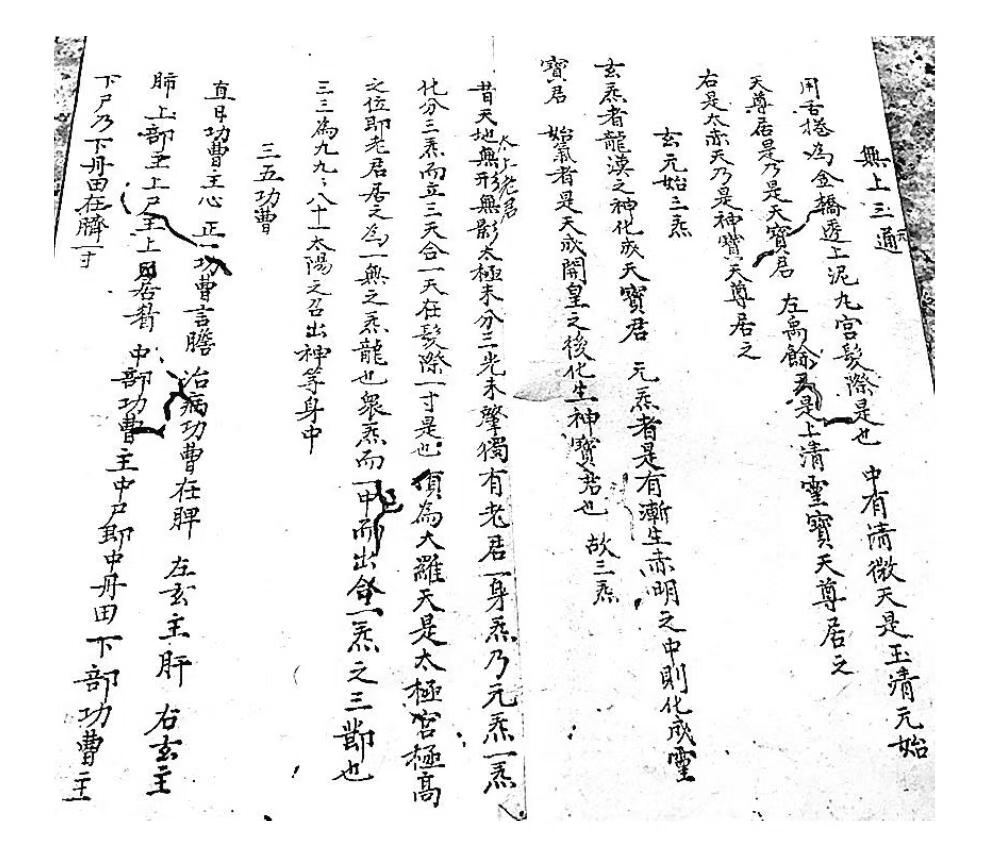 無上三元通
用舌捲為金橋透上泥九宮髮際是也 中有清微天是玉清元始
天尊居是乃是天寶君 左禹餘天是上清靈寶天尊居之
右是太赤天乃是神寶天尊居之
玄元始三炁
玄炁者龍漢之神化成天寶君 元炁者是有漸生赤明之中則化成靈
寶君 始氣者是天成開皇之後化生神寶君也 故三炁
太上老君
昔天地無形無影太極未分三光未肇獨有老君一身炁乃元炁一炁
化分三炁而立三天合一天在髮際一寸是也 頂為大羅天是太極宮極高
之位即老君居之為一無之炁龍也眾炁而一中而出合一炁之三節也
三三為九九〻八十太陽之召出神等身中
三五功曹
直日功曹主心 正一功曹言膽 治病功曹在脾 左玄主肝 右玄主
肺 上部主上尸主上居 中部功曹主中尸即中丹田 下部功曹主
下尸乃下丹田在臍一寸